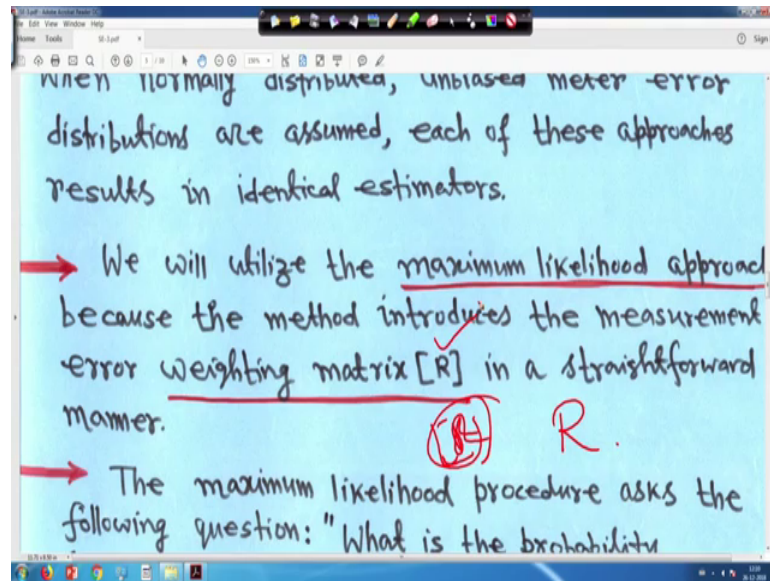 SE-3.pdf - Adobe Acrobat Reader DC
File Edit View Window Help
Home Tools SE-3.pdf × Sign
When normally distributed, unbiased meter error
distributions are assumed, each of these approaches
results in identical estimators.
We will utilize the maximum likelihood approach
because the method introduces the measurement
error weighting matrix [R] in a straightforward
manner.
R.
The maximum likelihood procedure asks the
following question: "What is the probability